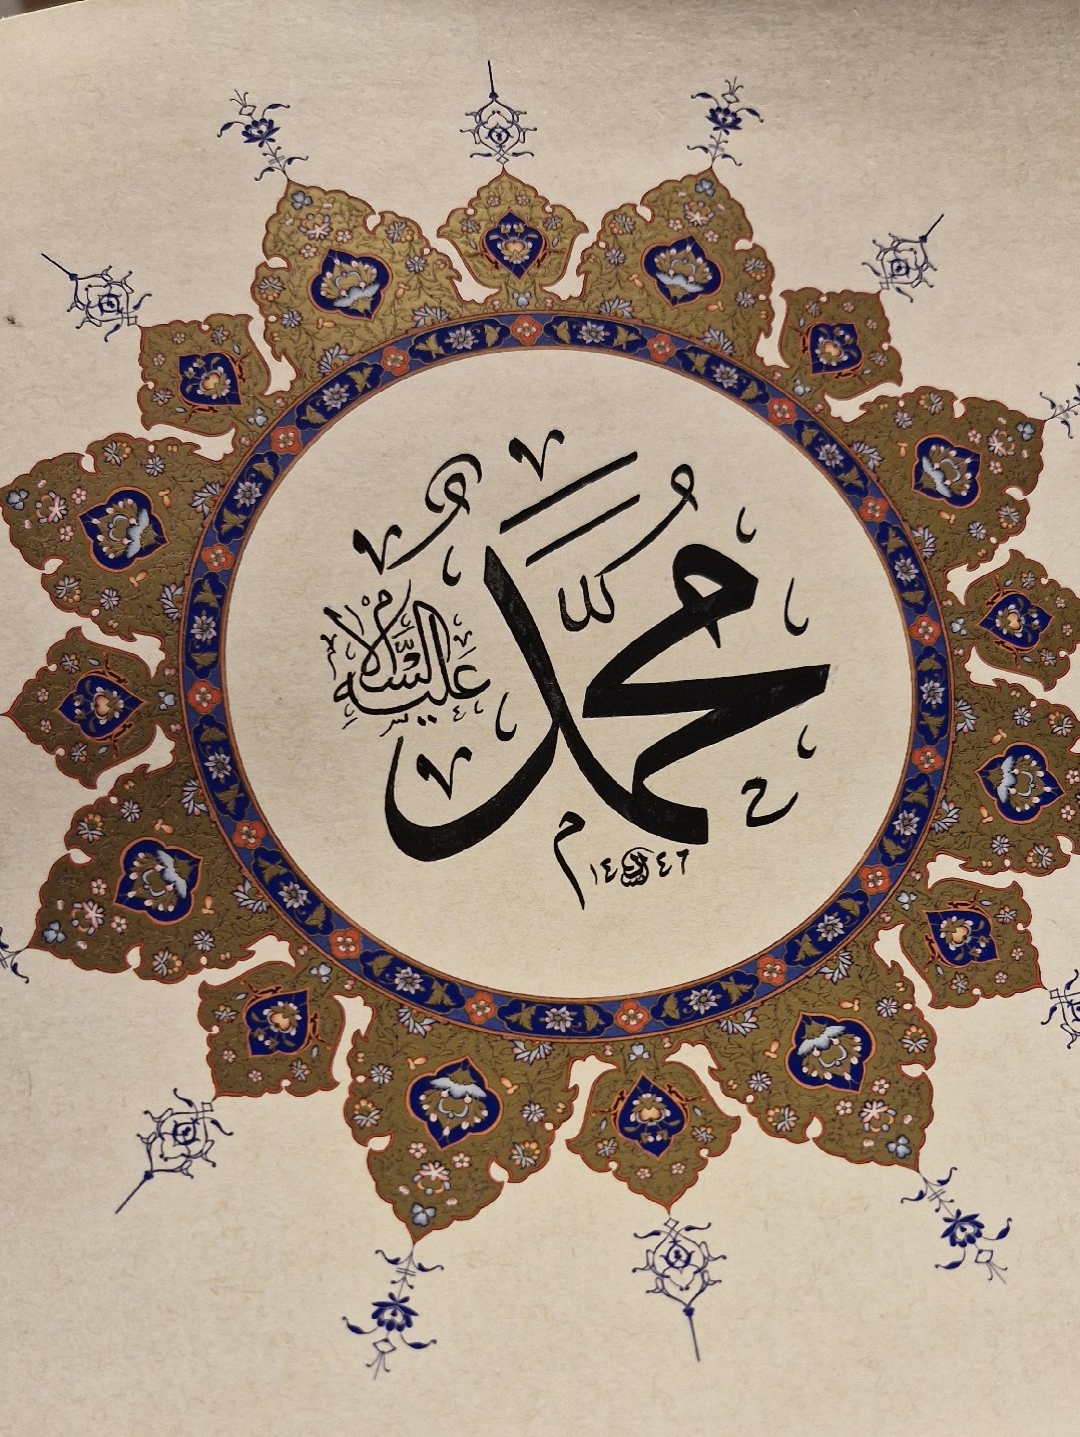 مُحَمَّدٌ
عَلَيْهِ السَّلَامُ
١٤ ٤٦